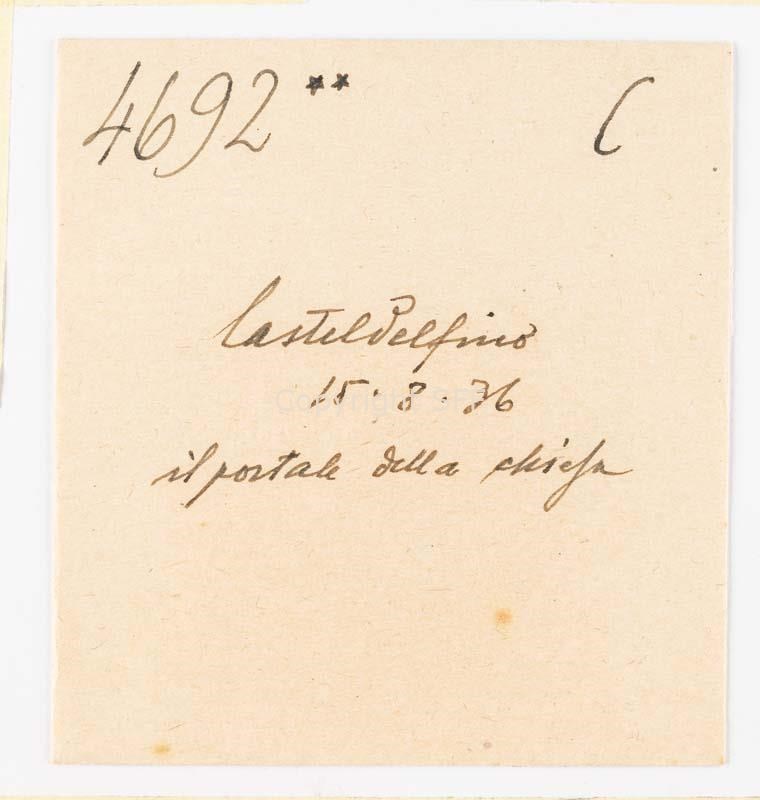 4692 ** C
Casteldelfino
15.8.36
il portale della chiesa